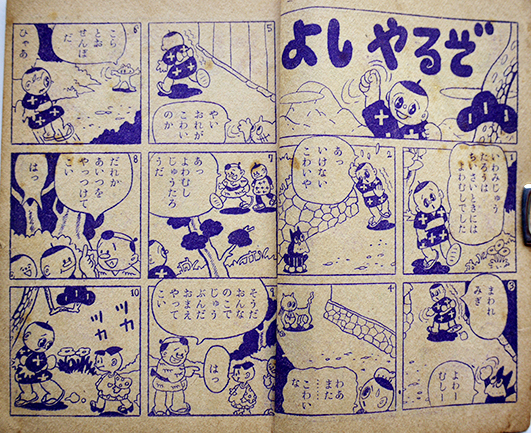 よし やるぞ
1
いわみじゅう
たろうは
ちいさいときには
よわむしでした
2
あっ
いけない
こわいや
3
まわれ
みぎ
よわー
むしー
4
わあ
また
……
こわい
な
5
やい
おれが
こわい
のか
6
こら
とおせんぼ
だ
ひゃあ
7
あっ
よわむし
じゅうたろ
うだ
8
だれか
あいつを
やっつけて
こい
はっ
そうだ
おんな
のこで
じゅう
ぶんだ
おまえ
やって
こい
はっ
10
ツカ
ツカ